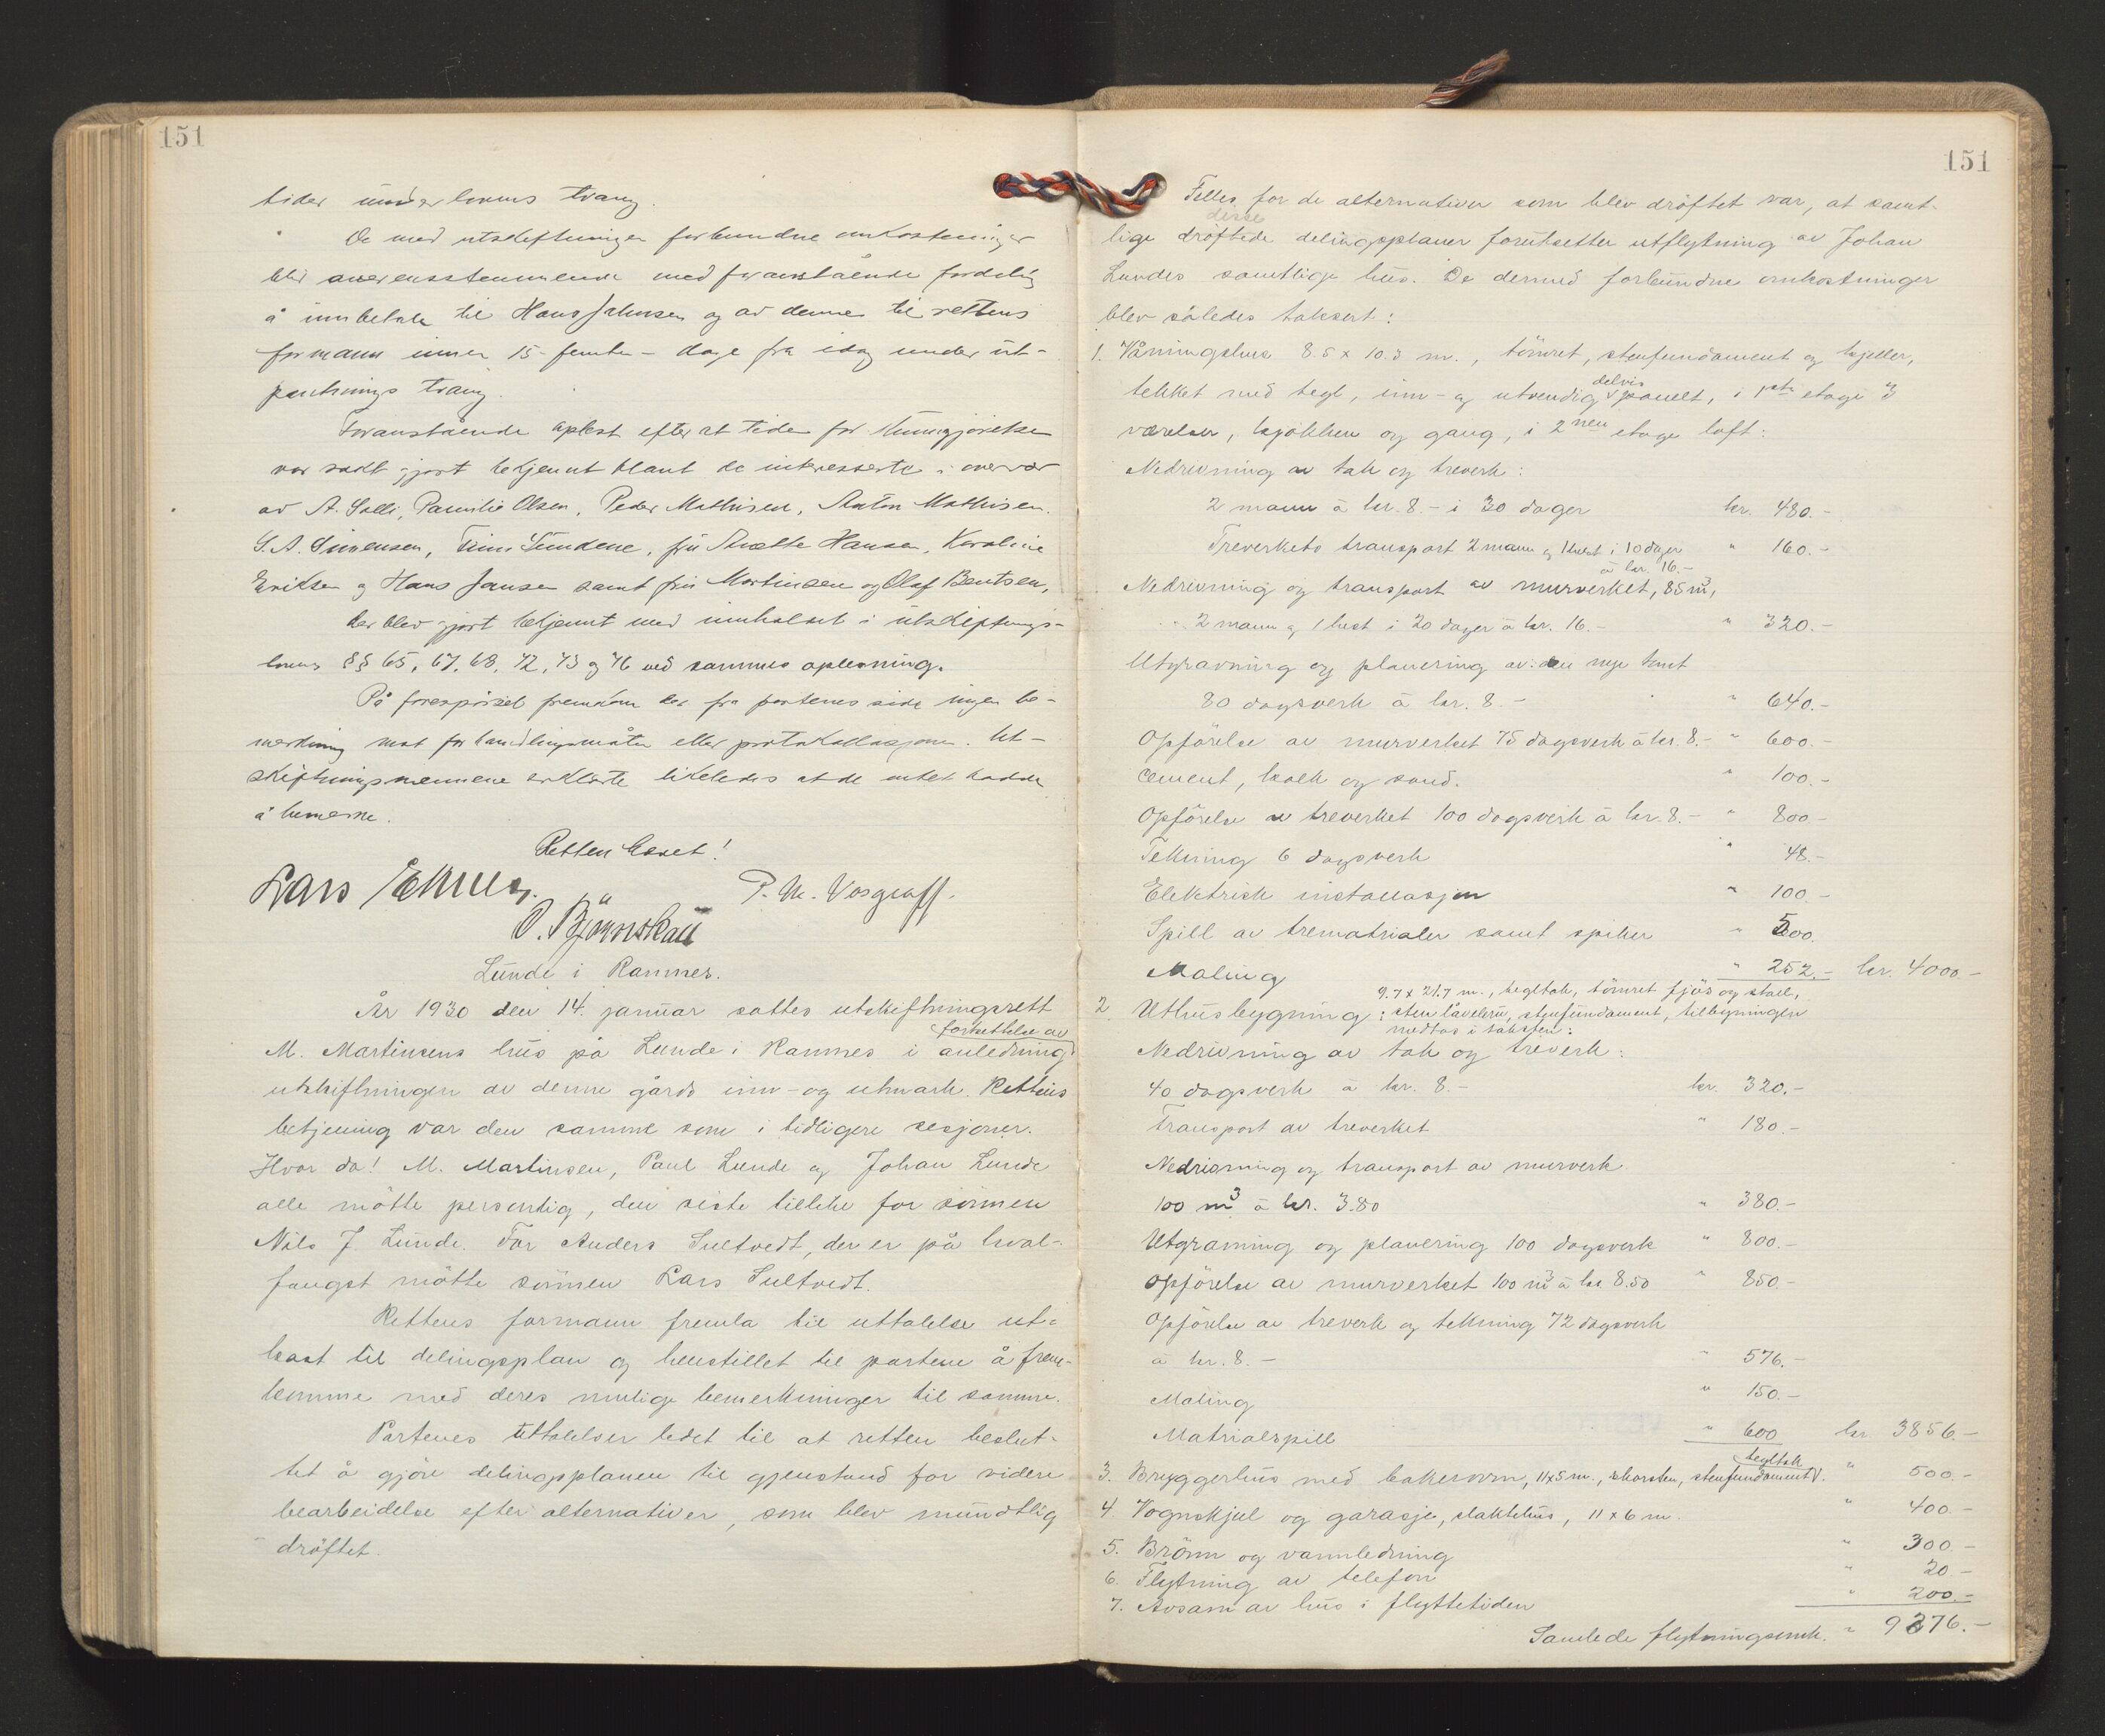 151
tider under lovens tvang.
De med utskiftningen forbundne omkostninger
blir overensstemmende med foranstående fordeling
å innbetale til Hans Johnsen og av denne til rettens
formann innen 15 - femten - dage fra idag under ut-
pantnings tvang.
Foranstående oplest efter at tiden for kunngjörelsen
var sadt gjort bekjennt blant de interesserte i overvær
av A. Solli, Olsen, Peder Mathisen, Anton Mathisen.
S. A. Simensen, Finn fru Hansen, Karoline
Eriksen og Hans Jansen samt fru Martinsen og Olaf Bentsen,
der blev gjort bekjennt med innholdet i utskiftnings-
lovens §§ 65, 67, 68, 72, 73 og 76 ved sammes oplesning.
På forespörsel fremkom der fra partenes side ingen be-
merkning mot forhandlingsmåten eller protokollasjonen. Ut-
skiftningsmennene erklærte likeledes at de intet hadde
å bemerke.
Retten hevet!
Lars P. M. Vosgraff.
O. Björnskau
Lunde i Ramnes.
År 1930 den 14. januar sattes utskiftningsrett
fortsettelse av
M. Martinsens hus på Lunde i Ramnes i anledning
utskiftningen av denne gårds inn- og utmark. Rettens
betjening var den samme som i tidligere sesjoner.
Hvor da! M. Martinsen, Paul Lunde og Johan Lunde
alle mötte personlig, den siste tillike for sönnen
Nils J Lunde. For Anders Sultvedt, der er på hval-
fangst mötte sönnen Lars Sultvedt.
Rettens formann fremla til uttalelse ut-
kast til delingsplan og henstillet til partene å frem-
komme med deres mulige bemerkninger til samme.
Partenes uttalelser ledet til at retten beslut-
tet å gjöre delingsplanen til gjenstand for videre
bearbeidelse efter alternativer, som blev mundtlig
dröftet.
151
Felles for de alternativer som blev dröftet var, at samt-
disse
lige dröftede delingsplaner forutsetter utflytning av Johan
Lundes samtlige hus. De dermed forbundne omkostninger
blev således taksert:
1. Våningshus 8.5 x 10.5 m., tömret, stenfundament og kjeller,
delvis
tekket med tegl, inn- og utvendig panelt, i 1ste etage 3
værelser, kjökken og gang, i 2nen etage loft:
Nedrivning av tak og treverk:
2 mann à kr. 8.- i 30 dager kr. 480.-
Treverkets transport 2 mann og 1 hest i 10 dager " 160.-
à kr. 16.-
Nedrivning og transport av murverket, 85 m3,
2 mann og 1 hest i 20 dager à kr. 16.- " 320.-
Utgravning og planering av den nye tomt
80 dagsverk à kr. 8.- " 640.-
Opförelse av murverket 75 dagsverk à kr. 8.- " 600.-
Cement, kalk og sand. " 100.-
Opförelse av treverket 100 dagsverk à kr. 8.- " 800.-
Tekning 6 dagsverk " 48.-
Elektrisk installasjon " 100.-
Spill av trematrialer samt spiker " 500.
Maling " 252.- kr. 4000.-
9.7 x 21.7 m., tegltak, tömret fjös og stall,
2. Uthusbygning: sten låvebru, stenfundament, tilbygningen
medtas i taksten:
Nedrivning av tak og treverk:
40 dagsverk à kr. 8.- kr. 320.-
Transport av treverket " 180.-
Nedrivning og transport av murverk
100 m3 à kr. 3.80 " 380.-
Utgravning og planering 100 dagsverk " 800.-
Opförelse av murverket 100 m3 à kr. 8.50 " 850.-
Opförelse av treverk og tekning 72 dagsverk
à kr. 8.- " 576.-
Maling " 150.-
Matrialspill " 600 kr 3856.-
tegltak
3. Bryggerhus med bakerovn, 11x5 m., skorsten, stenfundament V. " 500.-
4. Vognskjul og garasje, slaktehus, 11 x 6 m. " 400.-
5. Brönn og vannledning " 300.-
6. Flytning av telefon " 20.-
7. Avsavn av hus i flyttetiden " 200.-
Samlede flytningsomk. " 9276.-